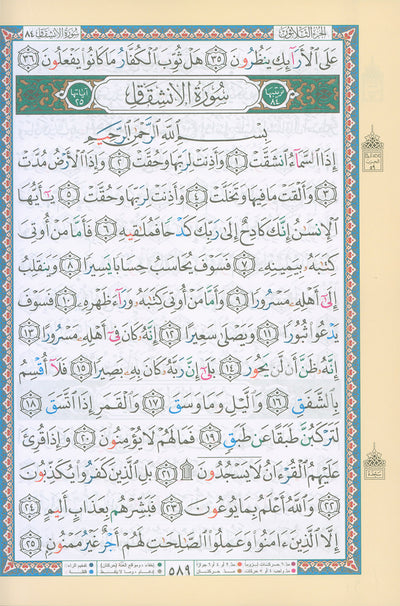 الجزء الثلاثون
سورة الانشقاق ٨٤
عَلَى الْأَرَائِكِ يَنظُرُونَ ٣٥ هَلْ ثُوِّبَ الْكُفَّارُ مَا كَانُوا يَفْعَلُونَ ٣٦
ترتيبها ٨٤ سُورَةُ الانْشِقَاقِ آياتها ٢٥
بِسْمِ اللَّهِ الرَّحْمَٰنِ الرَّحِيمِ
إِذَا السَّمَاءُ انشَقَّتْ ١ وَأَذِنَتْ لِرَبِّهَا وَحُقَّتْ ٢ وَإِذَا الْأَرْضُ مُدَّتْ
٣ وَأَلْقَتْ مَا فِيهَا وَتَخَلَّتْ ٤ وَأَذِنَتْ لِرَبِّهَا وَحُقَّتْ ٥ يَا أَيُّهَا
الْإِنسَانُ إِنَّكَ كَادِحٌ إِلَىٰ رَبِّكَ كَدْحًا فَمُلَاقِيهِ ٦ فَأَمَّا مَنْ أُوتِيَ
كِتَابَهُ بِيَمِينِهِ ٧ فَسَوْفَ يُحَاسَبُ حِسَابًا يَسِيرًا ٨ وَيَنقَلِبُ
إِلَىٰ أَهْلِهِ مَسْرُورًا ٩ وَأَمَّا مَنْ أُوتِيَ كِتَابَهُ وَرَاءَ ظَهْرِهِ ١٠ فَسَوْفَ
يَدْعُو ثُبُورًا ١١ وَيَصْلَىٰ سَعِيرًا ١٢ إِنَّهُ كَانَ فِي أَهْلِهِ مَسْرُورًا ١٣
إِنَّهُ ظَنَّ أَن لَّن يَحُورَ ١٤ بَلَىٰ إِنَّ رَبَّهُ كَانَ بِهِ بَصِيرًا ١٥ فَلَا أُقْسِمُ
بِالشَّفَقِ ١٦ وَاللَّيْلِ وَمَا وَسَقَ ١٧ وَالْقَمَرِ إِذَا اتَّسَقَ ١٨
لَتَرْكَبُنَّ طَبَقًا عَن طَبَقٍ ١٩ فَمَا لَهُمْ لَا يُؤْمِنُونَ ٢٠ وَإِذَا قُرِئَ
عَلَيْهِمُ الْقُرْآنُ لَا يَسْجُدُونَ ۩ ٢١ بَلِ الَّذِينَ كَفَرُوا يُكَذِّبُونَ
٢٢ وَاللَّهُ أَعْلَمُ بِمَا يُوعُونَ ٢٣ فَبَشِّرْهُم بِعَذَابٍ أَلِيمٍ ٢٤
إِلَّا الَّذِينَ آمَنُوا وَعَمِلُوا الصَّالِحَاتِ لَهُمْ أَجْرٌ غَيْرُ مَمْنُونٍ ٢٥
٥٨٩